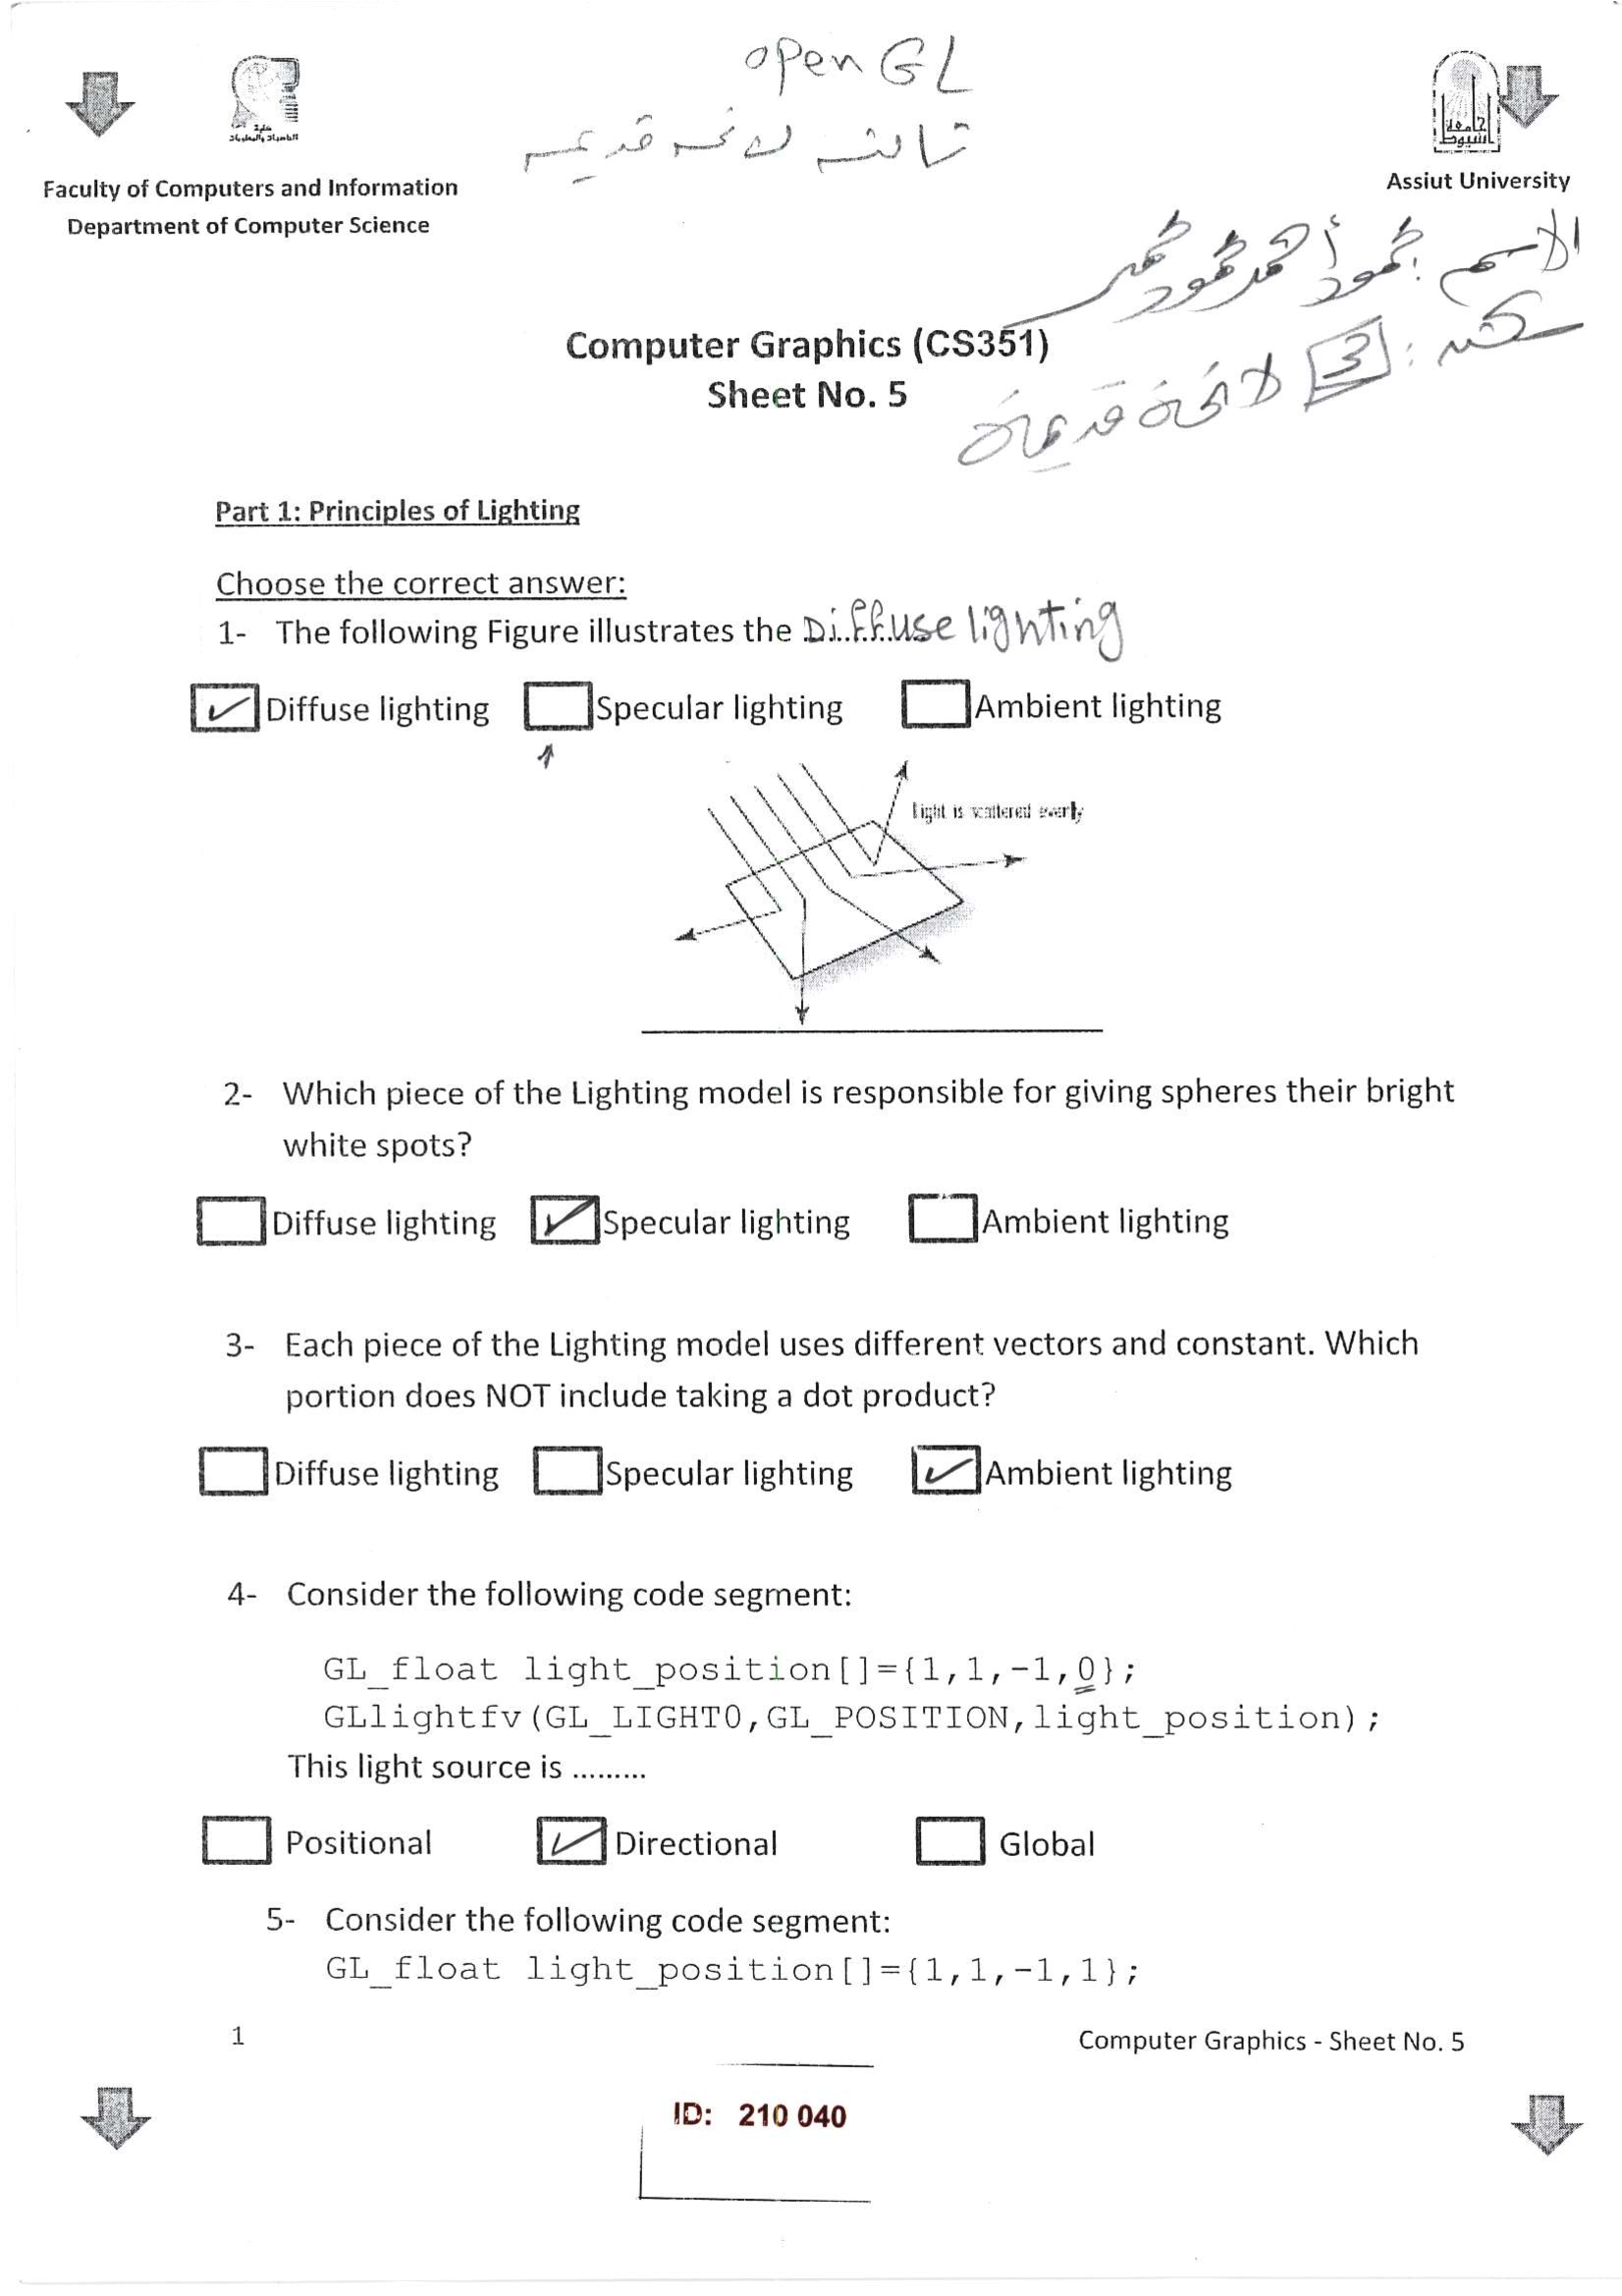 open GL
كلية
الحاسبات والمعلومات
جامعة
أسيوط
Faculty of Computers and Information
Department of Computer Science
Assiut University
الاسم: محمود أحمد محمود
Computer Graphics (CS351)
Sheet No. 5
3 لائحة قديمة
Part 1: Principles of Lighting
Choose the correct answer:
1- The following Figure illustrates the Diffuse lighting
Diffuse lighting Specular lighting Ambient lighting
Light is scattered evenly
2- Which piece of the Lighting model is responsible for giving spheres their bright
white spots?
Diffuse lighting Specular lighting Ambient lighting
3- Each piece of the Lighting model uses different vectors and constant. Which
portion does NOT include taking a dot product?
Diffuse lighting Specular lighting Ambient lighting
4- Consider the following code segment:
GL_float light_position[]={1,1,-1,0};
GLlightfv(GL_LIGHT0,GL_POSITION,light_position);
This light source is .........
Positional Directional Global
5- Consider the following code segment:
GL_float light_position[]={1,1,-1,1};
1 Computer Graphics - Sheet No. 5
ID: 210 040